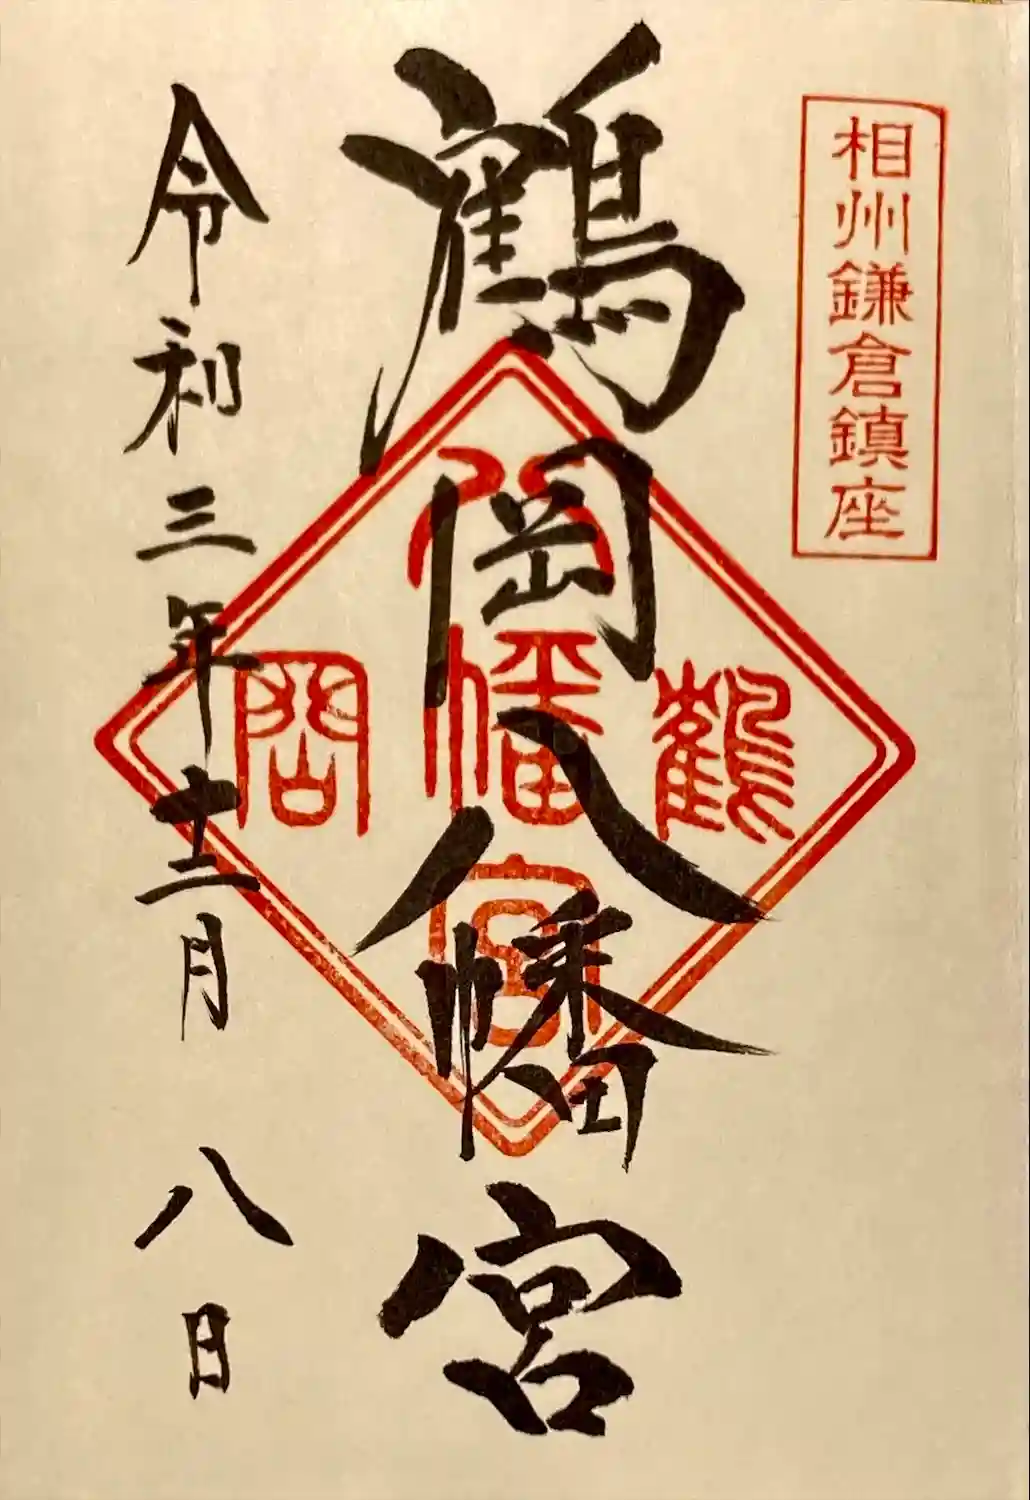 相州鎌倉鎮座
鶴岡八幡宮
八
鶴幡岡
宮
令和三年十二月八日